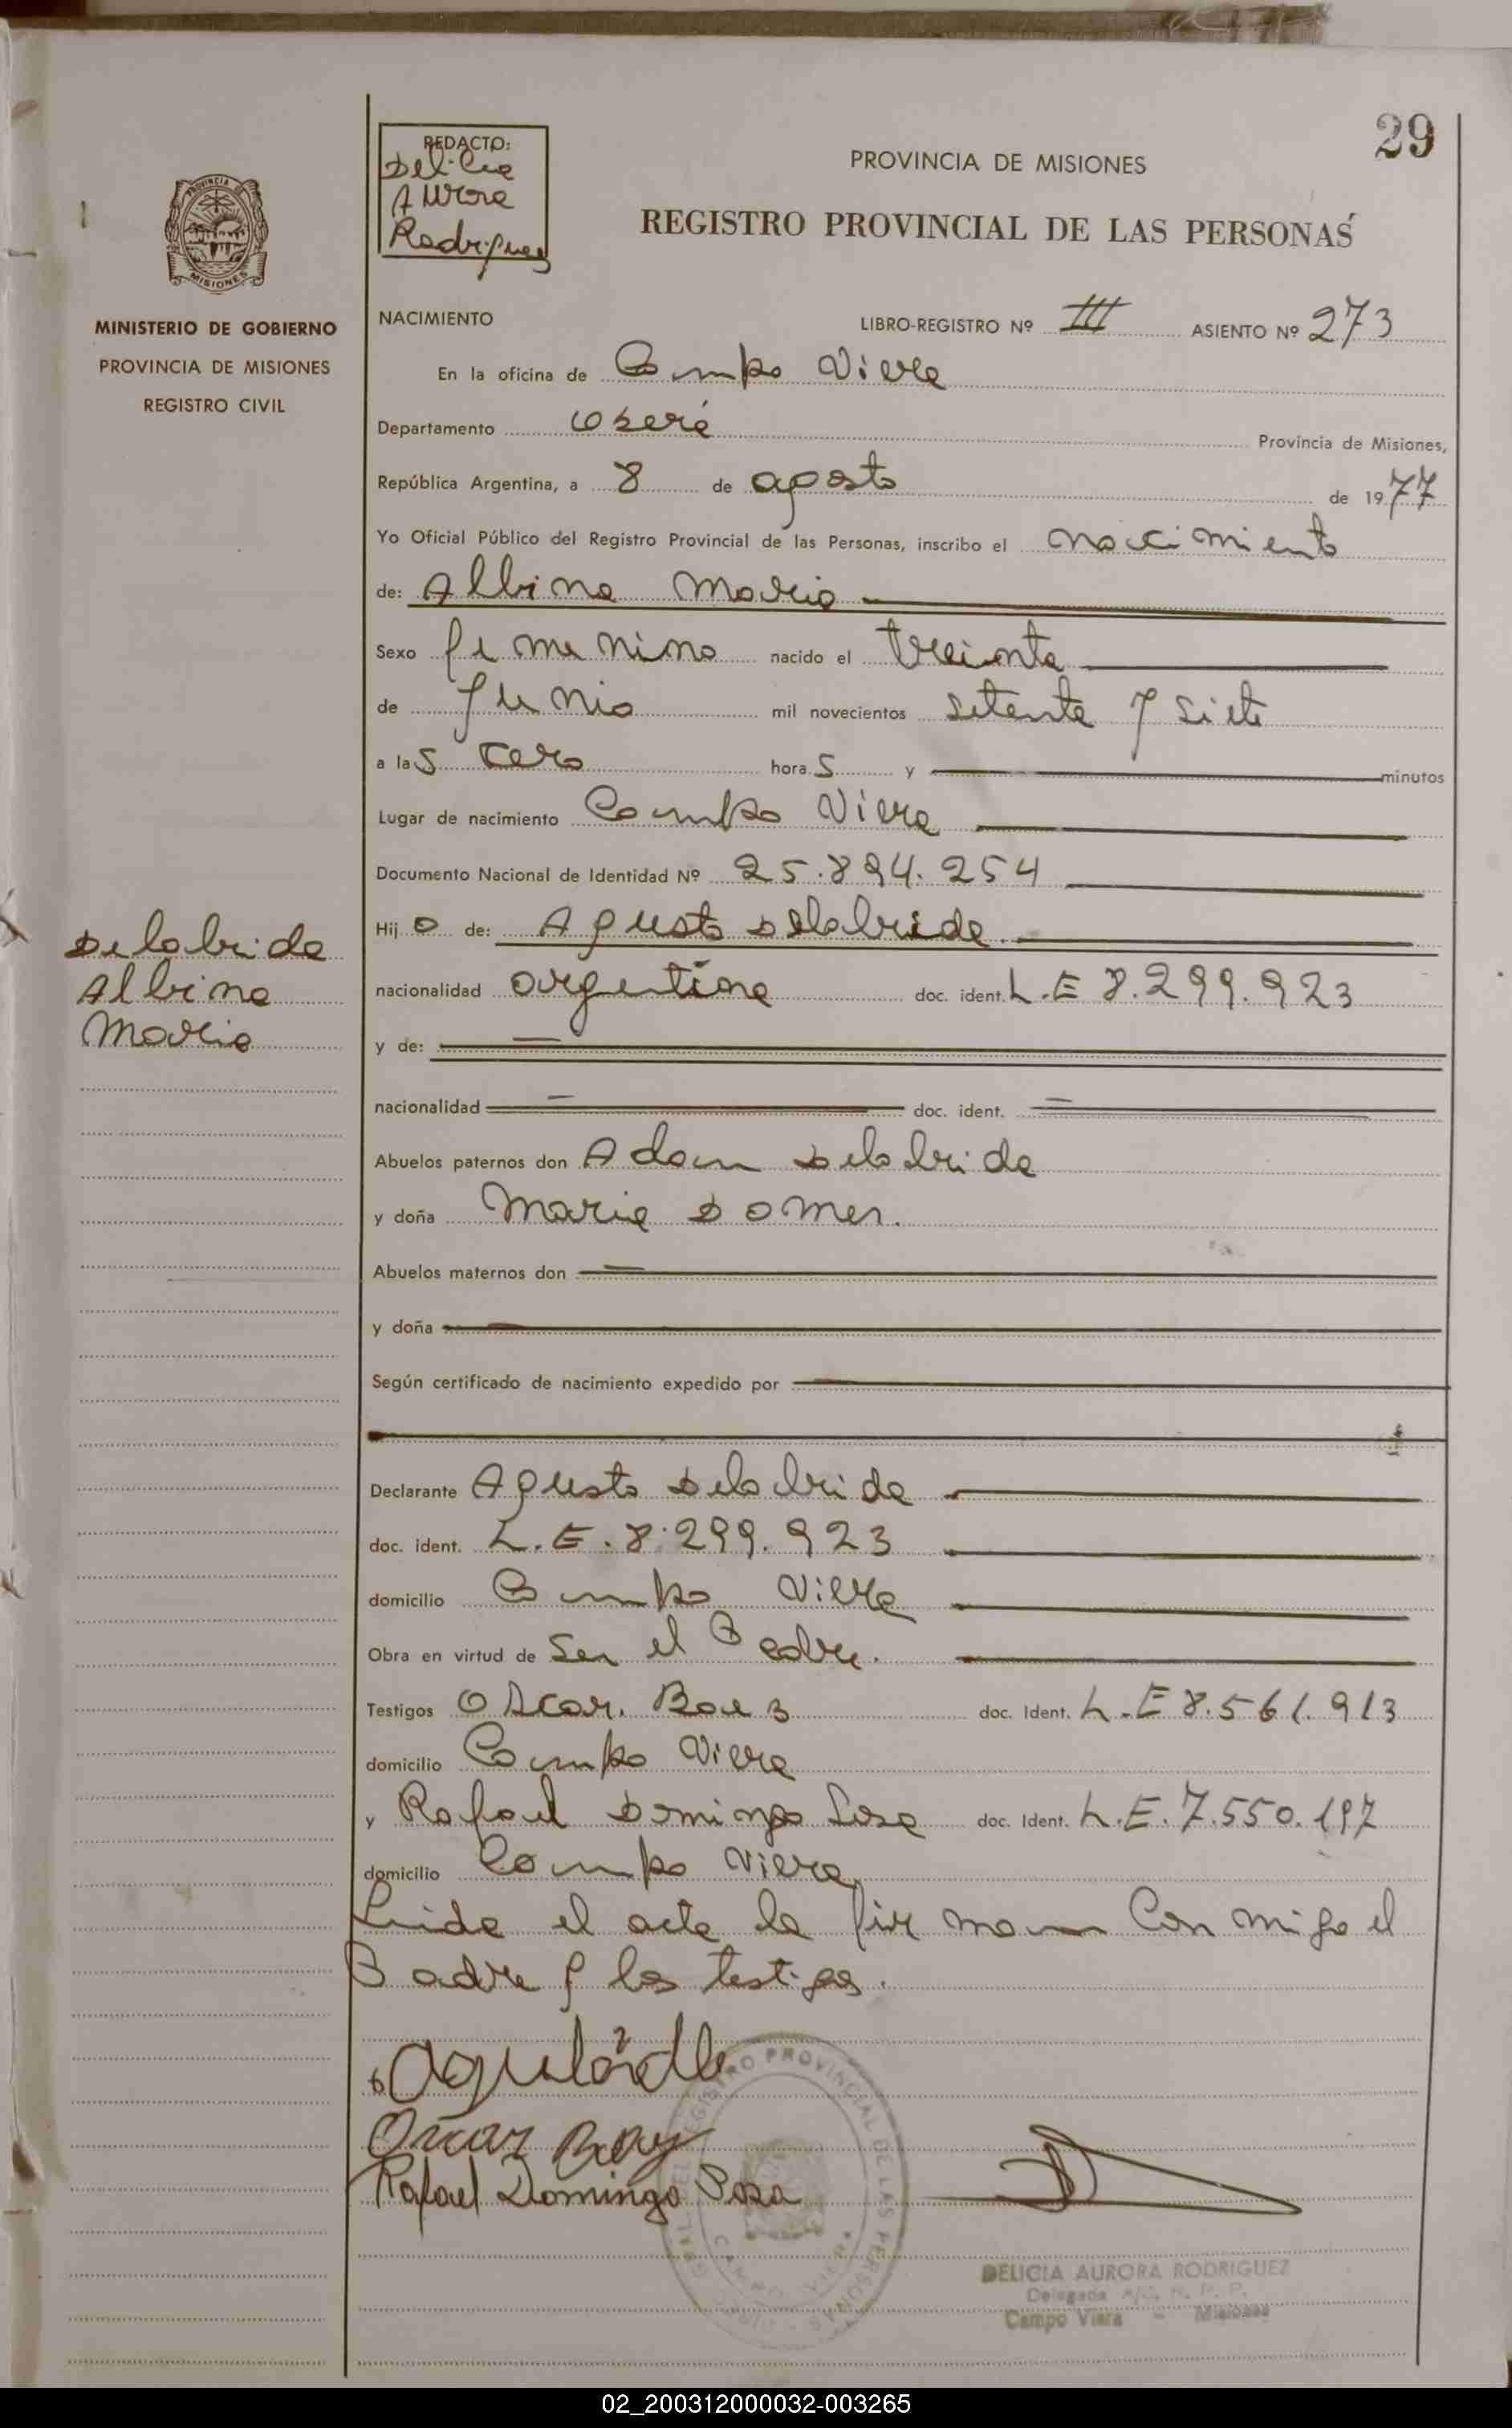 29
REDACTO:
Delicia
Aurora
Rodriguez
PROVINCIA DE MISIONES
REGISTRO PROVINCIAL DE LAS PERSONAS
PROVINCIA DE MISIONES
MINISTERIO DE GOBIERNO
PROVINCIA DE MISIONES
REGISTRO CIVIL
NACIMIENTO LIBRO-REGISTRO Nº III ASIENTO Nº 273
En la oficina de Campo Viera
Departamento Oberá Provincia de Misiones,
República Argentina, a 8 de agosto de 1977
Yo Oficial Público del Registro Provincial de las Personas, inscribo el nacimiento
de: Albina Maria
Sexo femenino nacido el treinta
de Junio mil novecientos setenta y siete
a las cero horas y minutos
Lugar de nacimiento Campo Viera
Documento Nacional de Identidad Nº 25.894.254
Hijo de: Agusto Delabrida
Delabrida
Albina
Maria
nacionalidad argentina doc. ident. L.E 8.299.923
y de:
nacionalidad doc. ident.
Abuelos paternos don Adam Delabrida
y doña Maria Domer.
Abuelos maternos don
y doña
Según certificado de nacimiento expedido por
Declarante Agusto Delabrida
doc. ident. L.E. 8.299.923
domicilio Campo Viera
Obra en virtud de ser el Padre.
Testigos Oscar. Baez doc. Ident. L.E 8.561.913
domicilio Campo Viera
y Rafael Domingo Sosa doc. Ident. L.E. 7.550.197
domicilio Campo Viera
Leida el acta la firman conmigo el
Padre y los testigos.
Rafael Domingo Sosa
REGISTRO PROVINCIAL DE LAS PERSONAS
DELICIA AURORA RODRIGUEZ
Delegada R. P. P.
Campo Viera - Misiones
02_200312000032-003265